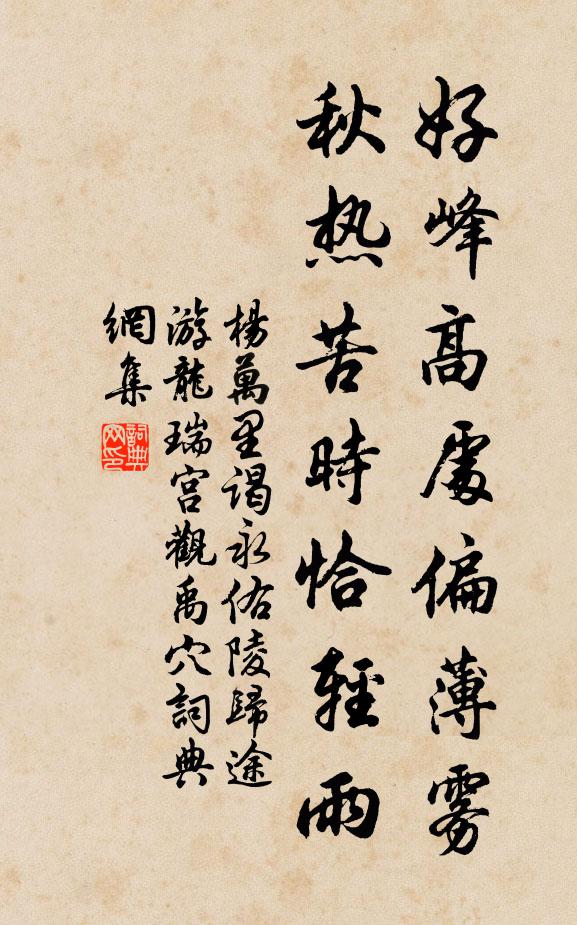 好峰高處偏薄霧
秋热苦時恰輕雨
楊萬里謁永佑陵歸途
游龍瑞宮觀禹穴詞典
網集
詞典
网印